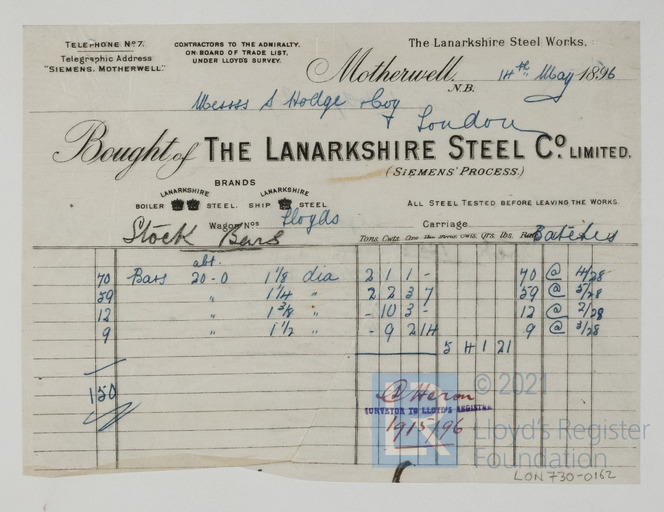 TELEPHONE No 7.
Telegraphic Address
"SIEMENS, MOTHERWELL."
CONTRACTORS TO THE ADMIRALTY,
ON BOARD OF TRADE LIST,
UNDER LLOYD'S SURVEY.
The Lanarkshire Steel Works,
Motherwell, 14th May 1896
N.B.
Messrs S Hodge & Coy
London
Bought of THE LANARKSHIRE STEEL Co. LIMITED.
(SIEMENS' PROCESS.)
BRANDS
LANARKSHIRE LANARKSHIRE
BOILER STEEL. SHIP STEEL
ALL STEEL TESTED BEFORE LEAVING THE WORKS.
Wagon Nos Lloyds Carriage
Stock Bars Tons. Cwts. Qrs. Lbs. Tons. Cwts. Qrs. lbs. Batches
abt.
70 Bars 20-0 1 1/8 dia 2 1 1 - 70 @ 4/28
59 " 1 1/4 " 2 2 3 7 59 @ 5/28
12 " 1 3/8 " - 10 3 - 12 @ 2/28
9 " 1 1/2 " - 9 2 14 9 @ 3/28
5 4 1 21
150
C Heron
SURVEYOR TO LLOYD'S REGISTER
19/5/96
LR
© 2021
Lloyd's Register
Foundation
LON730-0162